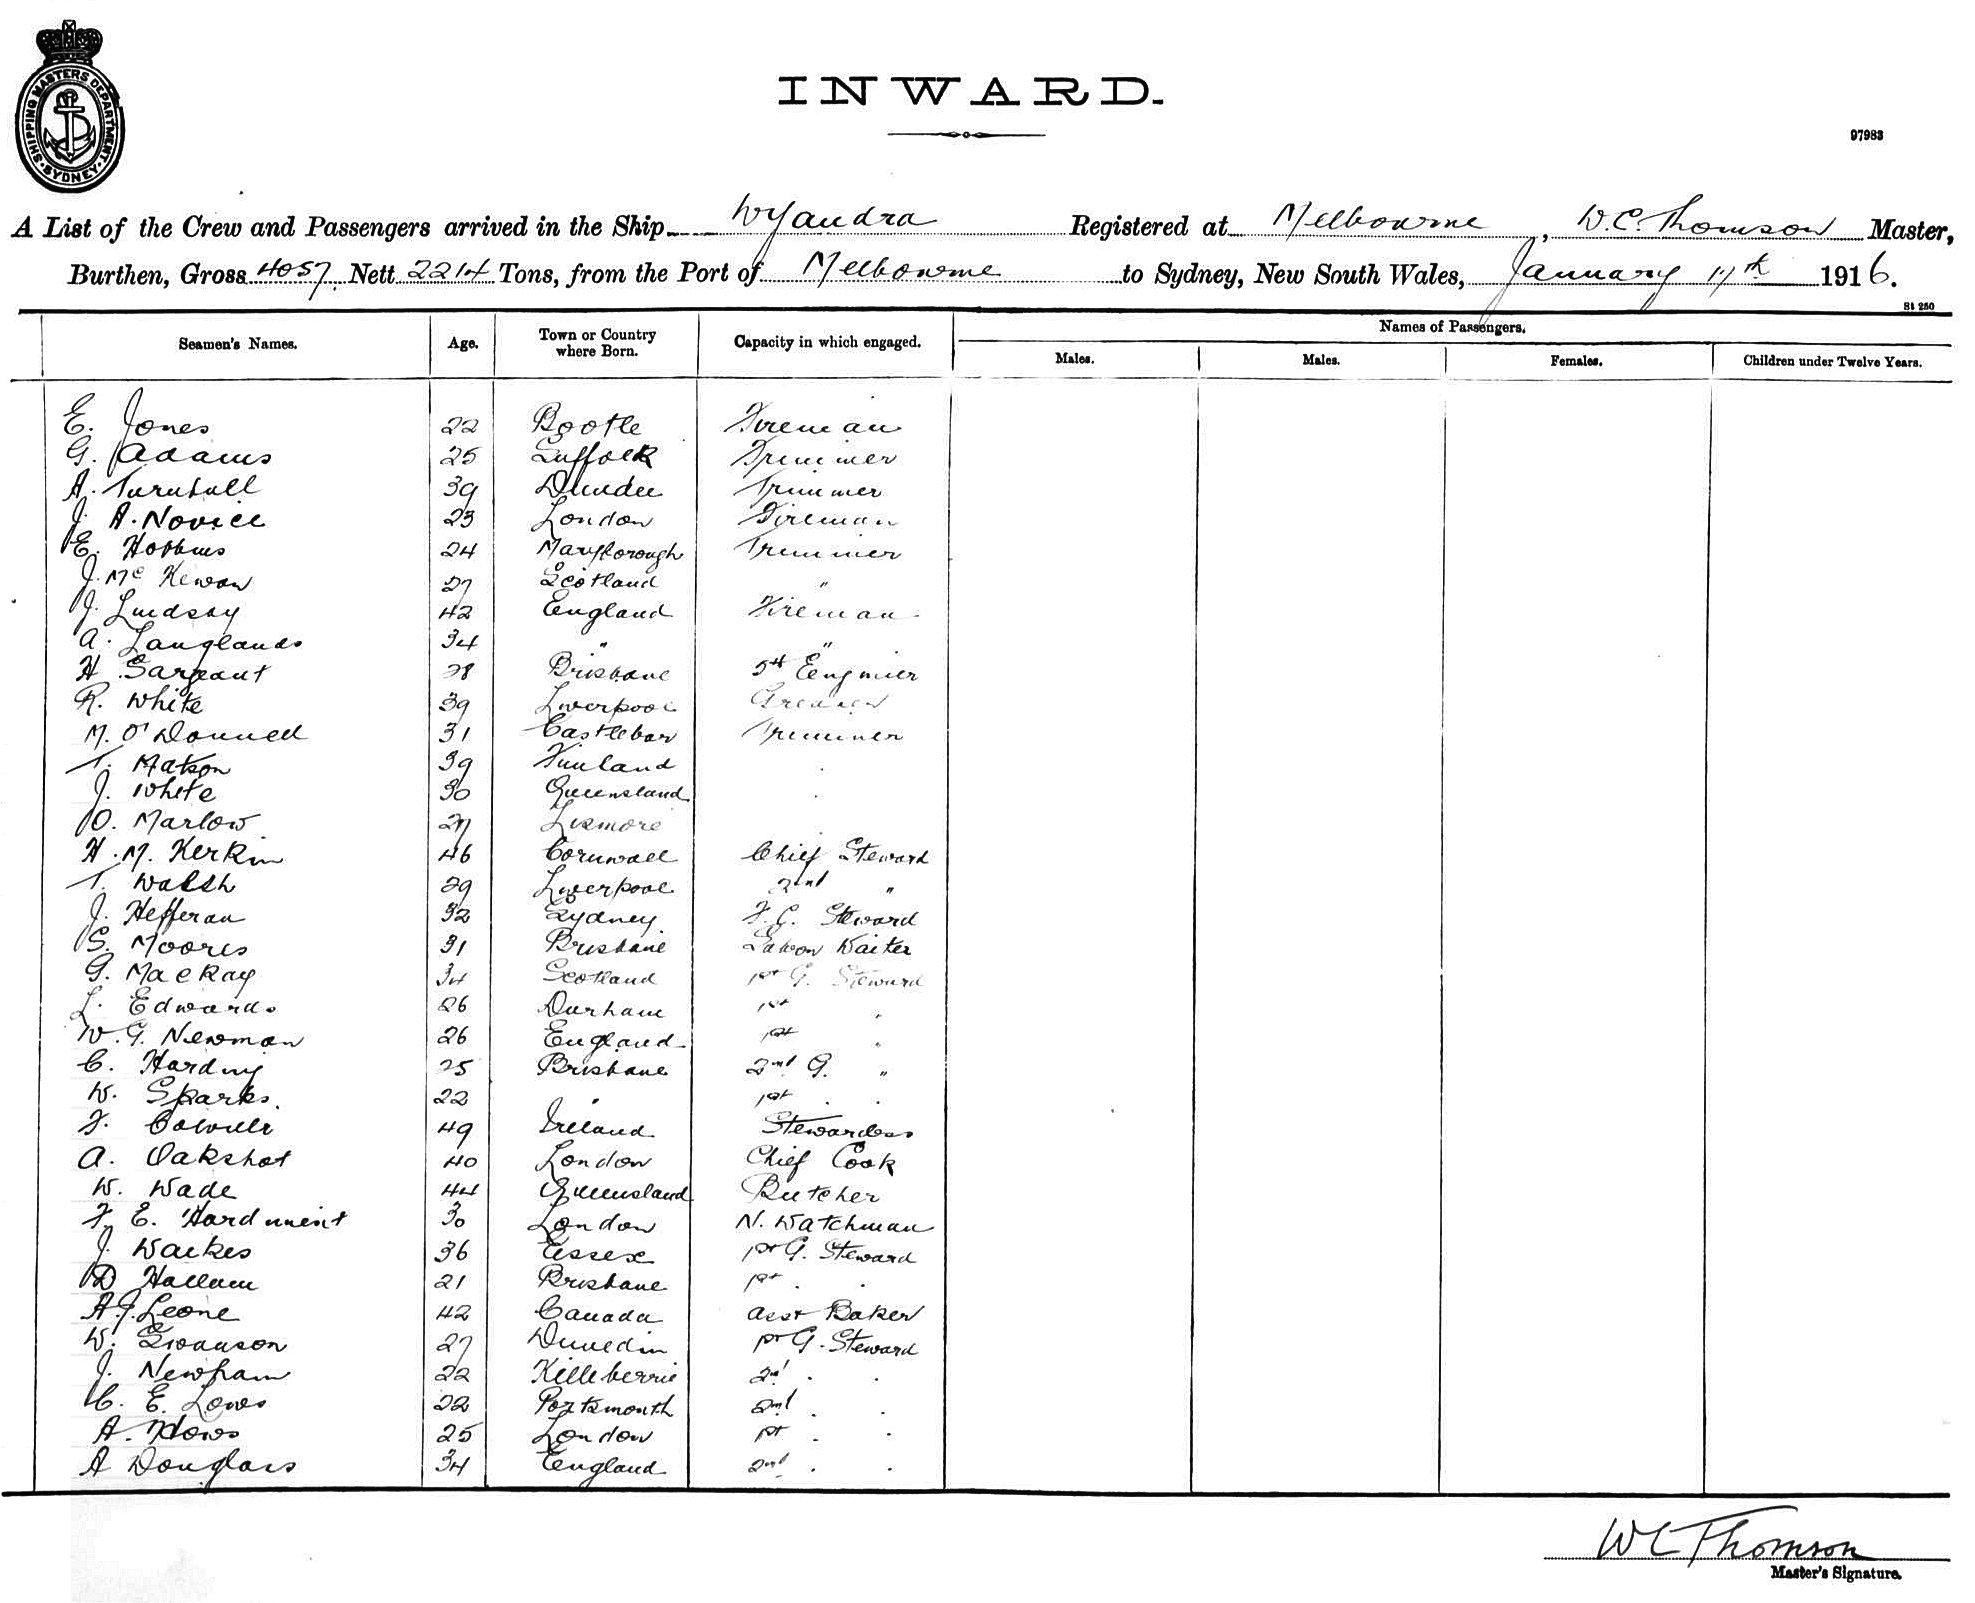 SHIPPING MASTERS DEPARTMENT. SYDNEY
INWARD.
97983
A List of the Crew and Passengers arrived in the Ship Wyandra Registered at Melbourne, W.C. Thomson Master,
Burthen, Gross 4057 Nett 2214 Tons, from the Port of Melbourne to Sydney, New South Wales, January 1916.
St 250
Seamen's Names. Age. Town or Country where Born. Capacity in which engaged. Names of Passengers.
Males. Males. Females. Children under Twelve Years.
E. Jones 22 Bootle Fireman
G. Adams 25 Suffolk Trimmer
A. Turnbull 39 Dundee Trimmer
J. A. Novice 23 London Fireman
E. Hobbins 24 Maryborough Trimmer
J. Mc Kewan 27 Scotland "
J. Lindsay 42 England Fireman
A. Langlands 34 " "
H. Sargeant 28 Brisbane 5th Engineer
R. White 39 Liverpool Greaser
M. O'Donnell 31 Castlebar Trimmer
T. Matson 39 Finland
J. White 30 Queensland
O. Marlow 27 Lismore
H. M. Kerkin 46 Cornwall Chief Steward
T. Walsh 29 Liverpool 2nd "
J. Hefferan 32 Sydney F. C. Steward
S. Moores 31 Brisbane Saloon Waiter
G. MacKay 34 Scotland 1st G. Steward
L. Edwards 26 Durham 1st "
W. G. Newman 26 England 1st "
C. Harding 25 Brisbane 2nd G. "
W. Sparks. 22 " 1st . .
F. 49 Ireland Stewardess
A. Oakshot 40 London Chief Cook
W. Wade 44 Queensland Butcher
F. E. Hardiment 30 London N. Watchman
J. Waikes 36 Essex 1st G. Steward
D Hallam 21 Brisbane 1st . .
A. J. Leone 42 Canada Asst Baker
W. Swanson 27 Dunedin 1st G. Steward
J. Newham 22 2nd . .
C. E. Lows 22 Portsmouth 2nd . .
A. Hows 25 London 1st . .
A Douglass 34 England 2nd . .
WC Thomson
Master's Signature.